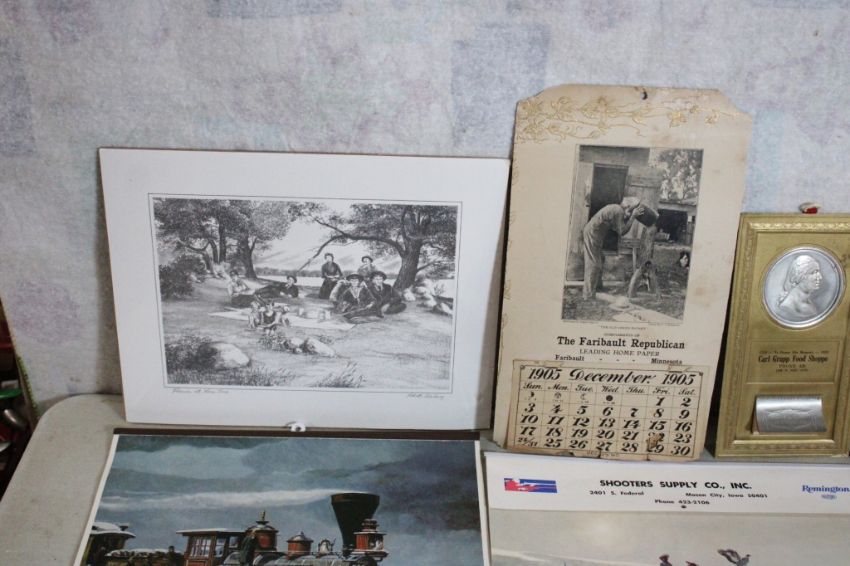 The Faribault Republican
LEADING HOME PAPER
Faribault Minnesota
1905 December 1905
Sun. Mon. Tue. Wed. Thu. Fri. Sat.
1 2
3 4 5 6 7 8 9
10 11 12 13 14 15 16
17 18 19 20 21 22 23
24/31 25 26 27 28 29 30
Carl Grupp Food Shoppe
SHOOTERS SUPPLY CO., INC.
2401 S. Federal Mason City, Iowa 50401
Phone 423-2106
Remington